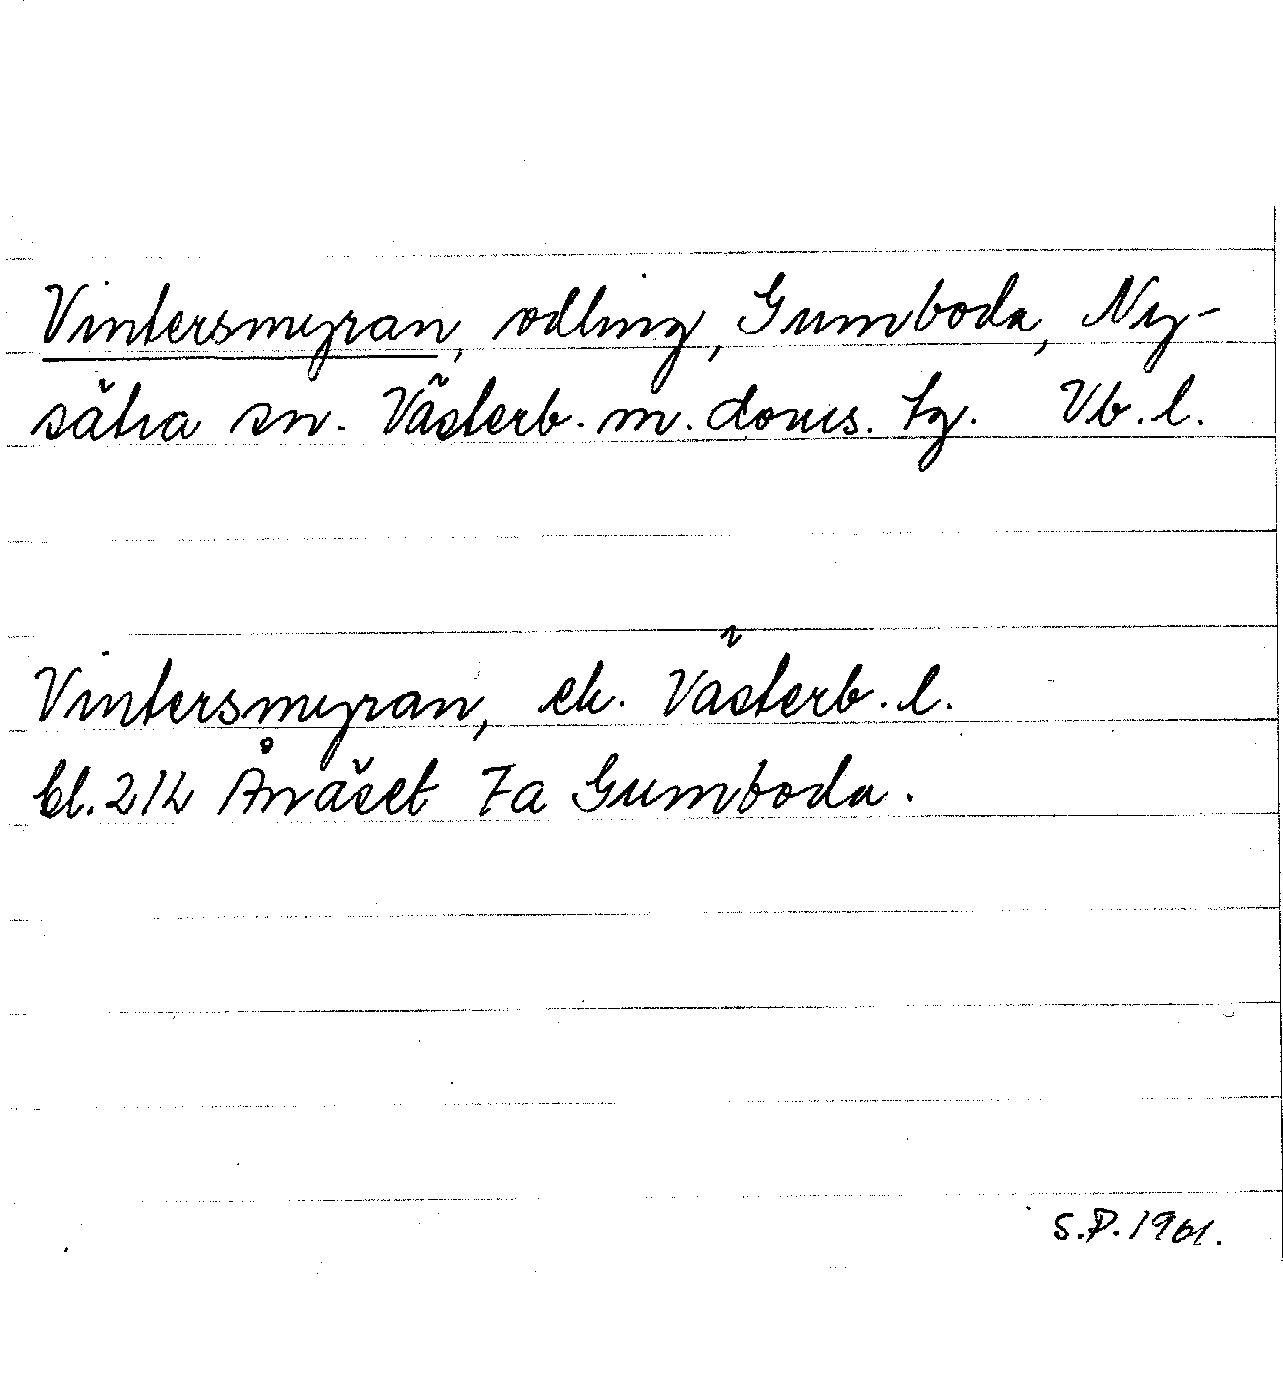 Vintersmyran, odling, Gumboda, Ny-
sätra sn. Västerb. m. doms. tg. Vb. l.
Vintersmyran, ek. Västerb. l.
bl. 21k Ånäset 7a Gumboda.
S.P. 1961.